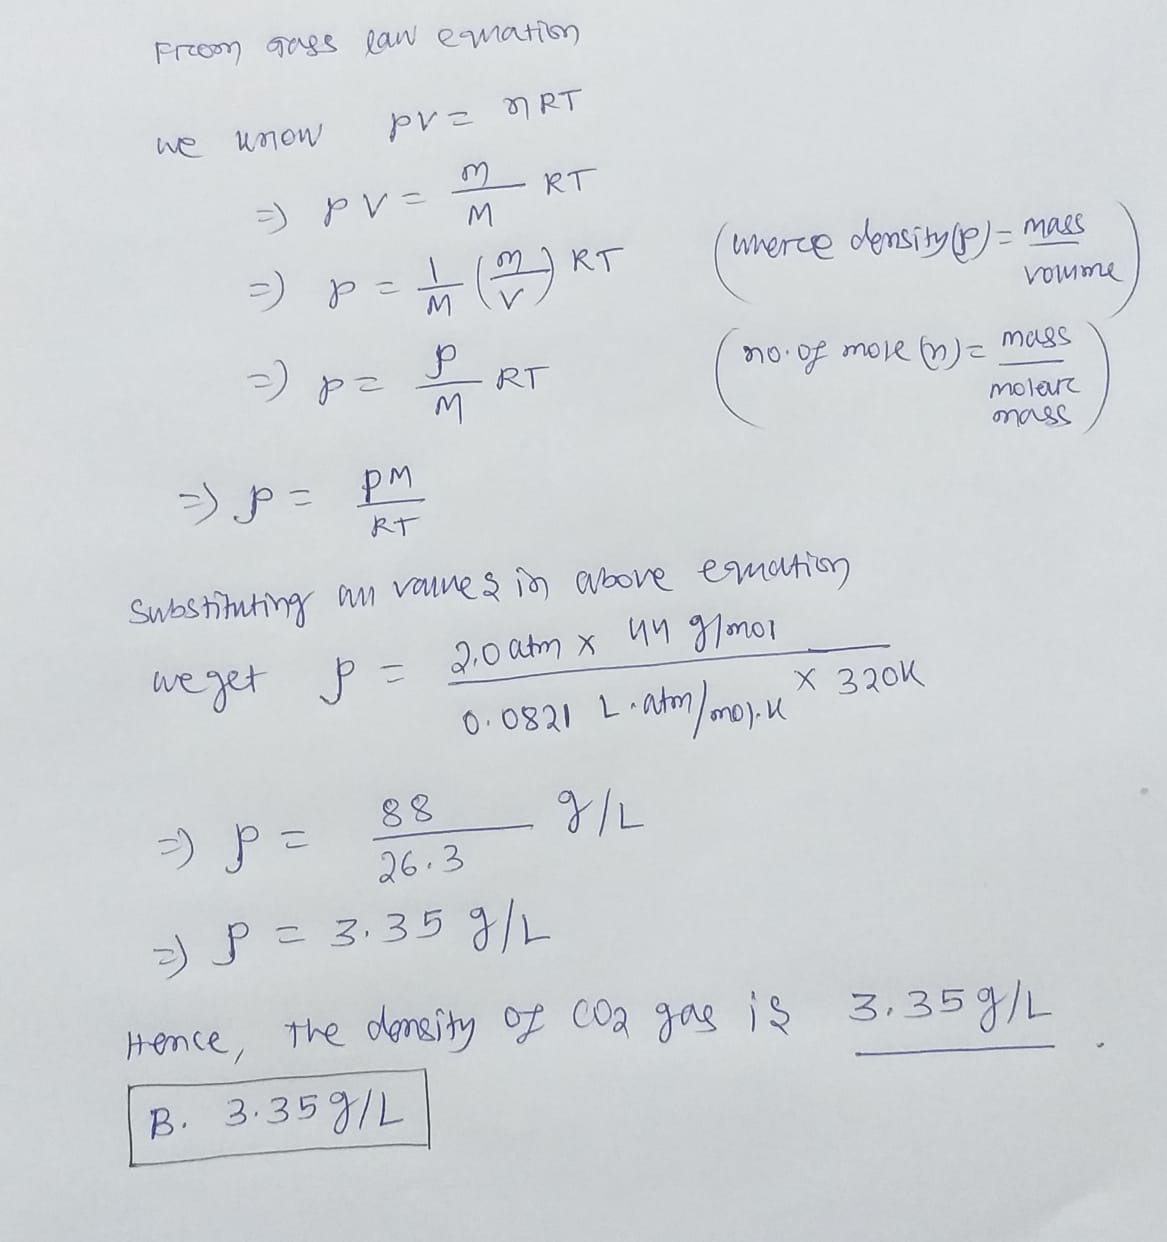 From gass law equation
we know PV = nRT
=> PV = m/M RT
=> P = 1/M (m/V) RT (where density(ρ) = mass/volume)
=> P = ρ/M RT (no. of mole (n) = mass/molar mass)
=> ρ = PM/RT
Substituting all values in above equation
we get ρ = 2.0 atm x 44 g/mol / 0.0821 L.atm/mol.K x 320K
=> ρ = 88/26.3 g/L
=> ρ = 3.35 g/L
Hence, The density of CO2 gas is 3.35 g/L.
B. 3.35 g/L